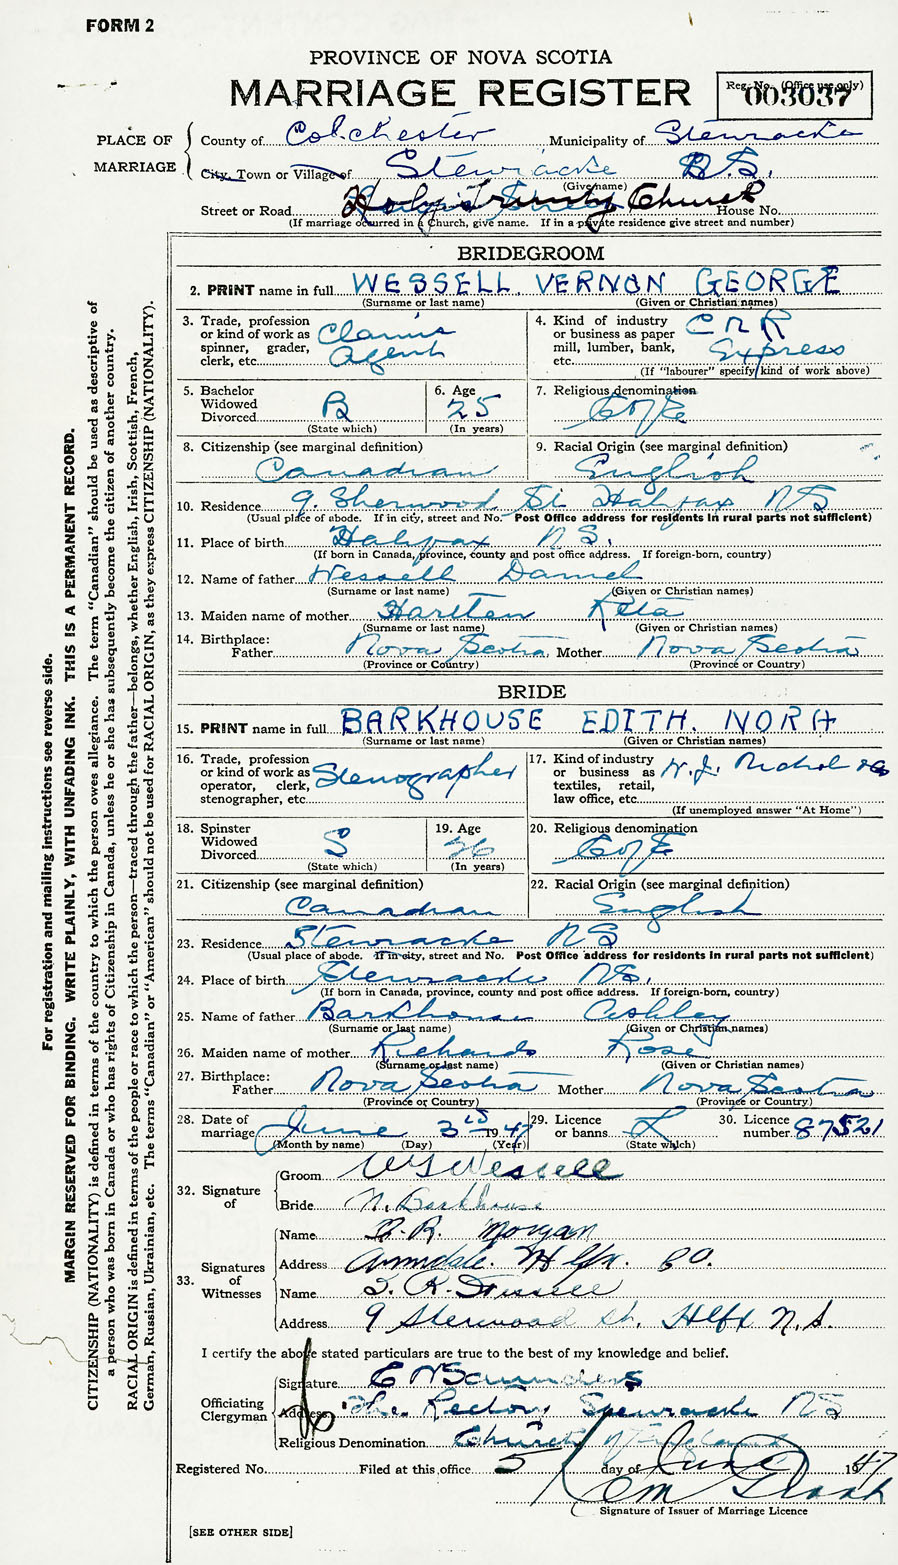 FORM 2
PROVINCE OF NOVA SCOTIA
MARRIAGE REGISTER
Reg. No. (Office use only)
003037
PLACE OF MARRIAGE
County of Colchester Municipality of Stewiacke
City, Town or Village of Stewiacke N.S.
(Give name)
Street or Road Holy Trinity Church House No.
(If marriage occurred in a Church, give name. If in a private residence give street and number)
BRIDEGROOM
2. PRINT name in full WESSELL VERNON GEORGE
(Surname or last name) (Given or Christian names)
3. Trade, profession or kind of work as spinner, grader, clerk, etc. Claims Agent
4. Kind of industry or business as paper mill, lumber, bank, etc. C N R Express
(If "labourer" specify kind of work above)
5. Bachelor Widowed Divorced B
(State which)
6. Age 25
(In years)
7. Religious denomination C of E
8. Citizenship (see marginal definition) Canadian
9. Racial Origin (see marginal definition) English
10. Residence 9 Sherwood St Halifax NS
(Usual place of abode. If in city, street and No. Post Office address for residents in rural parts not sufficient)
11. Place of birth Halifax N.S.
(If born in Canada, province, county and post office address. If foreign-born, country)
12. Name of father Wessell Daniel
(Surname or last name) (Given or Christian names)
13. Maiden name of mother Reta
(Surname or last name) (Given or Christian names)
14. Birthplace:
Father Nova Scotia Mother Nova Scotia
(Province or Country) (Province or Country)
BRIDE
15. PRINT name in full BARKHOUSE EDITH. NORA
(Surname or last name) (Given or Christian names)
16. Trade, profession or kind of work as operator, clerk, stenographer, etc. Stenographer
17. Kind of industry or business as textiles, retail, law office, etc. Nichol
(If unemployed answer "At Home")
18. Spinster Widowed Divorced S
(State which)
19. Age 26
(In years)
20. Religious denomination C of E
21. Citizenship (see marginal definition) Canadian
22. Racial Origin (see marginal definition) English
23. Residence Stewiacke NS
(Usual place of abode. If in city, street and No. Post Office address for residents in rural parts not sufficient)
24. Place of birth Stewiacke N.S.
(If born in Canada, province, county and post office address. If foreign-born, country)
25. Name of father Barkhouse Ashley
(Surname or last name) (Given or Christian names)
26. Maiden name of mother Richards Rose
(Surname or last name) (Given or Christian names)
27. Birthplace:
Father Nova Scotia Mother Nova Scotia
(Province or Country) (Province or Country)
28. Date of marriage June 3rd 1947
(Month by name) (Day) (Year)
29. Licence or banns L
(State which)
30. Licence number 87521
32. Signature of
Groom Wessell
Bride N. Barkhouse
33. Signatures of Witnesses
Name R. Morgan
Address Armdale. Hlfx. Co.
Name
Address 9 Sherwood St. Hlfx N.S.
I certify the above stated particulars are true to the best of my knowledge and belief.
Officiating Clergyman
Signature Saunders
Address The Rectory Stewiacke NS
Religious Denomination Church of England
Registered No. Filed at this office 5 day of June 1947
Signature of Issuer of Marriage Licence
[SEE OTHER SIDE]
For registration and mailing instructions see reverse side.
MARGIN RESERVED FOR BINDING. WRITE PLAINLY, WITH UNFADING INK. THIS IS A PERMANENT RECORD.
CITIZENSHIP (NATIONALITY) is defined in terms of the country to which the person owes allegiance. The term "Canadian" should be used as descriptive of
a person who was born in Canada or who has rights of Citizenship in Canada, unless he or she has subsequently become the citizen of another country.
RACIAL ORIGIN is defined in terms of the people or race to which the person—traced through the father—belongs, whether English, Irish, Scottish, French,
German, Russian, Ukrainian, etc. The terms "Canadian" or "American" should not be used for RACIAL ORIGIN, as they express CITIZENSHIP (NATIONALITY).